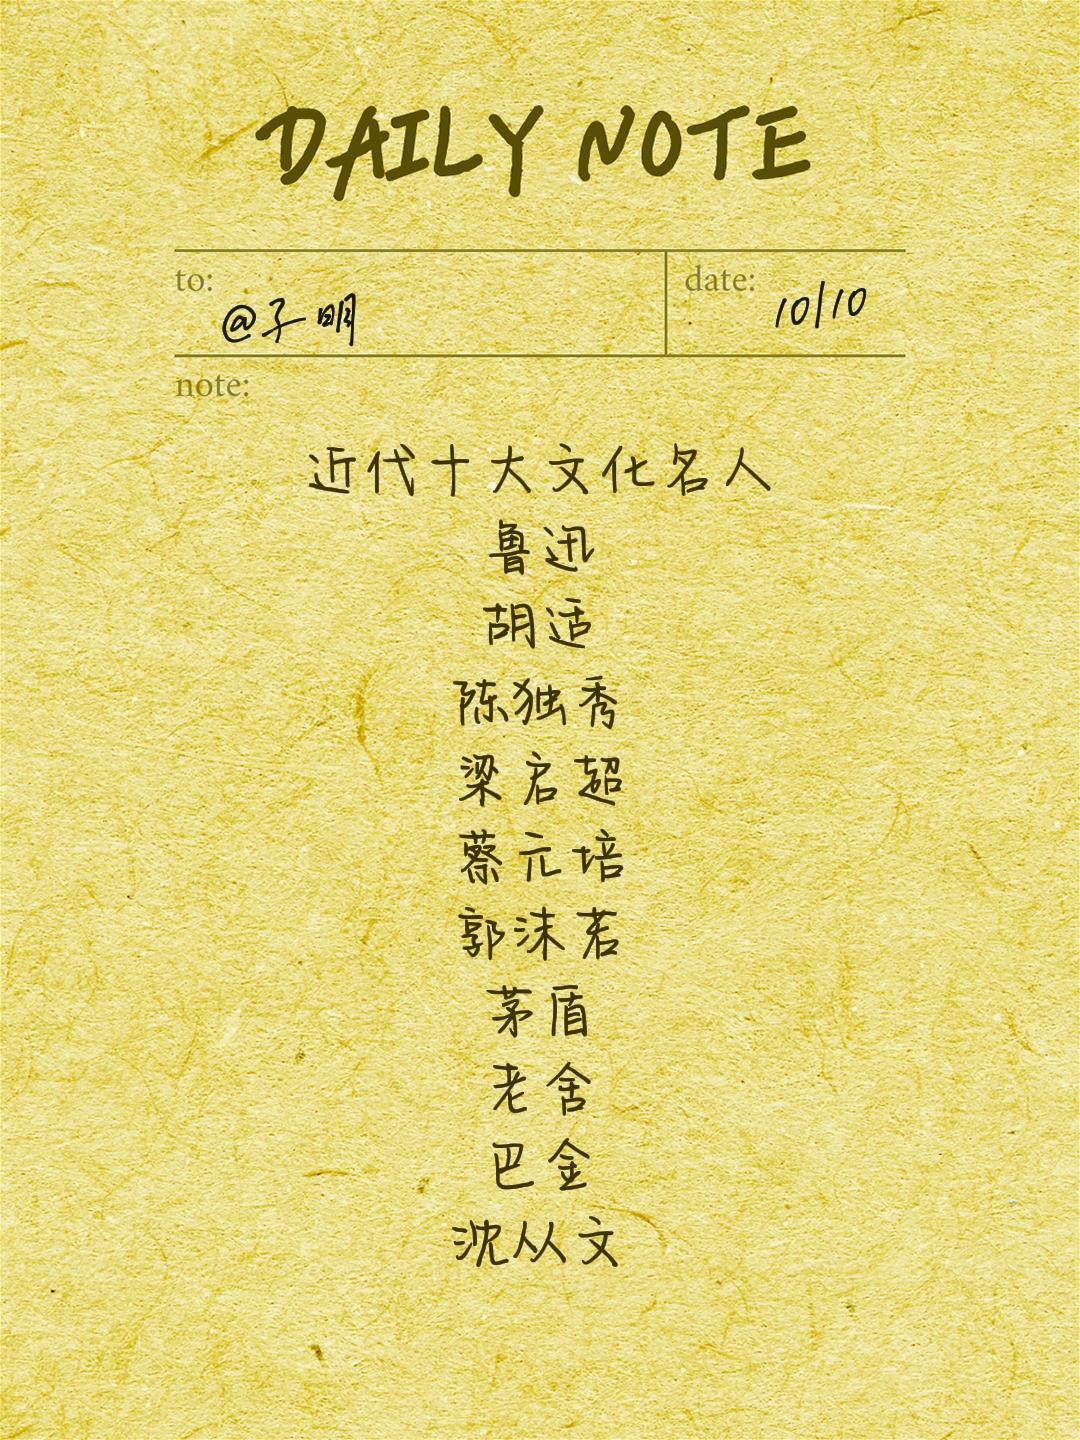 DAILY NOTE
to:
@子明
date:
10/10
note:
近代十大文化名人
鲁迅
胡适
陈独秀
梁启超
蔡元培
郭沫若
茅盾
老舍
巴金
沈从文